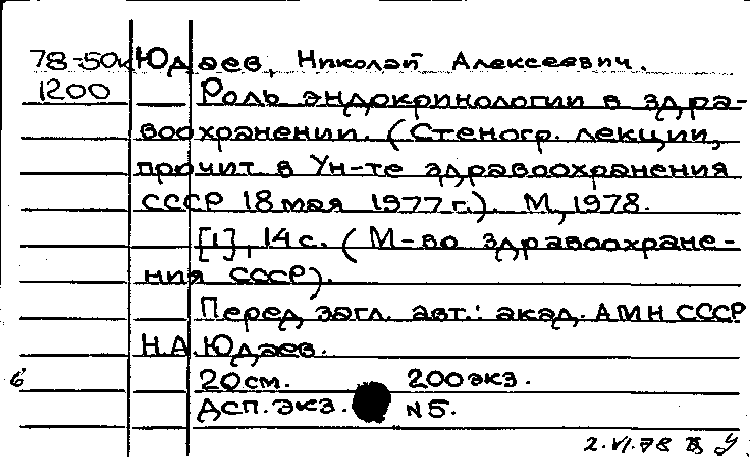 78-50к Юдаев, Николай Алексеевич.
1200 Роль эндокринологии в здра-
воохранении. (Стеногр. лекции,
прочит. в Ун-те здравоохранения
СССР 18 мая 1977 г.). М., 1978.
[1], 14 с. (М-во здравоохране-
ния СССР).
Перед загл. авт.: акад. АМН СССР
Н.А. Юдаев.
6 20 см. 200 экз.
Дсп. экз. N5.
2.VI.78